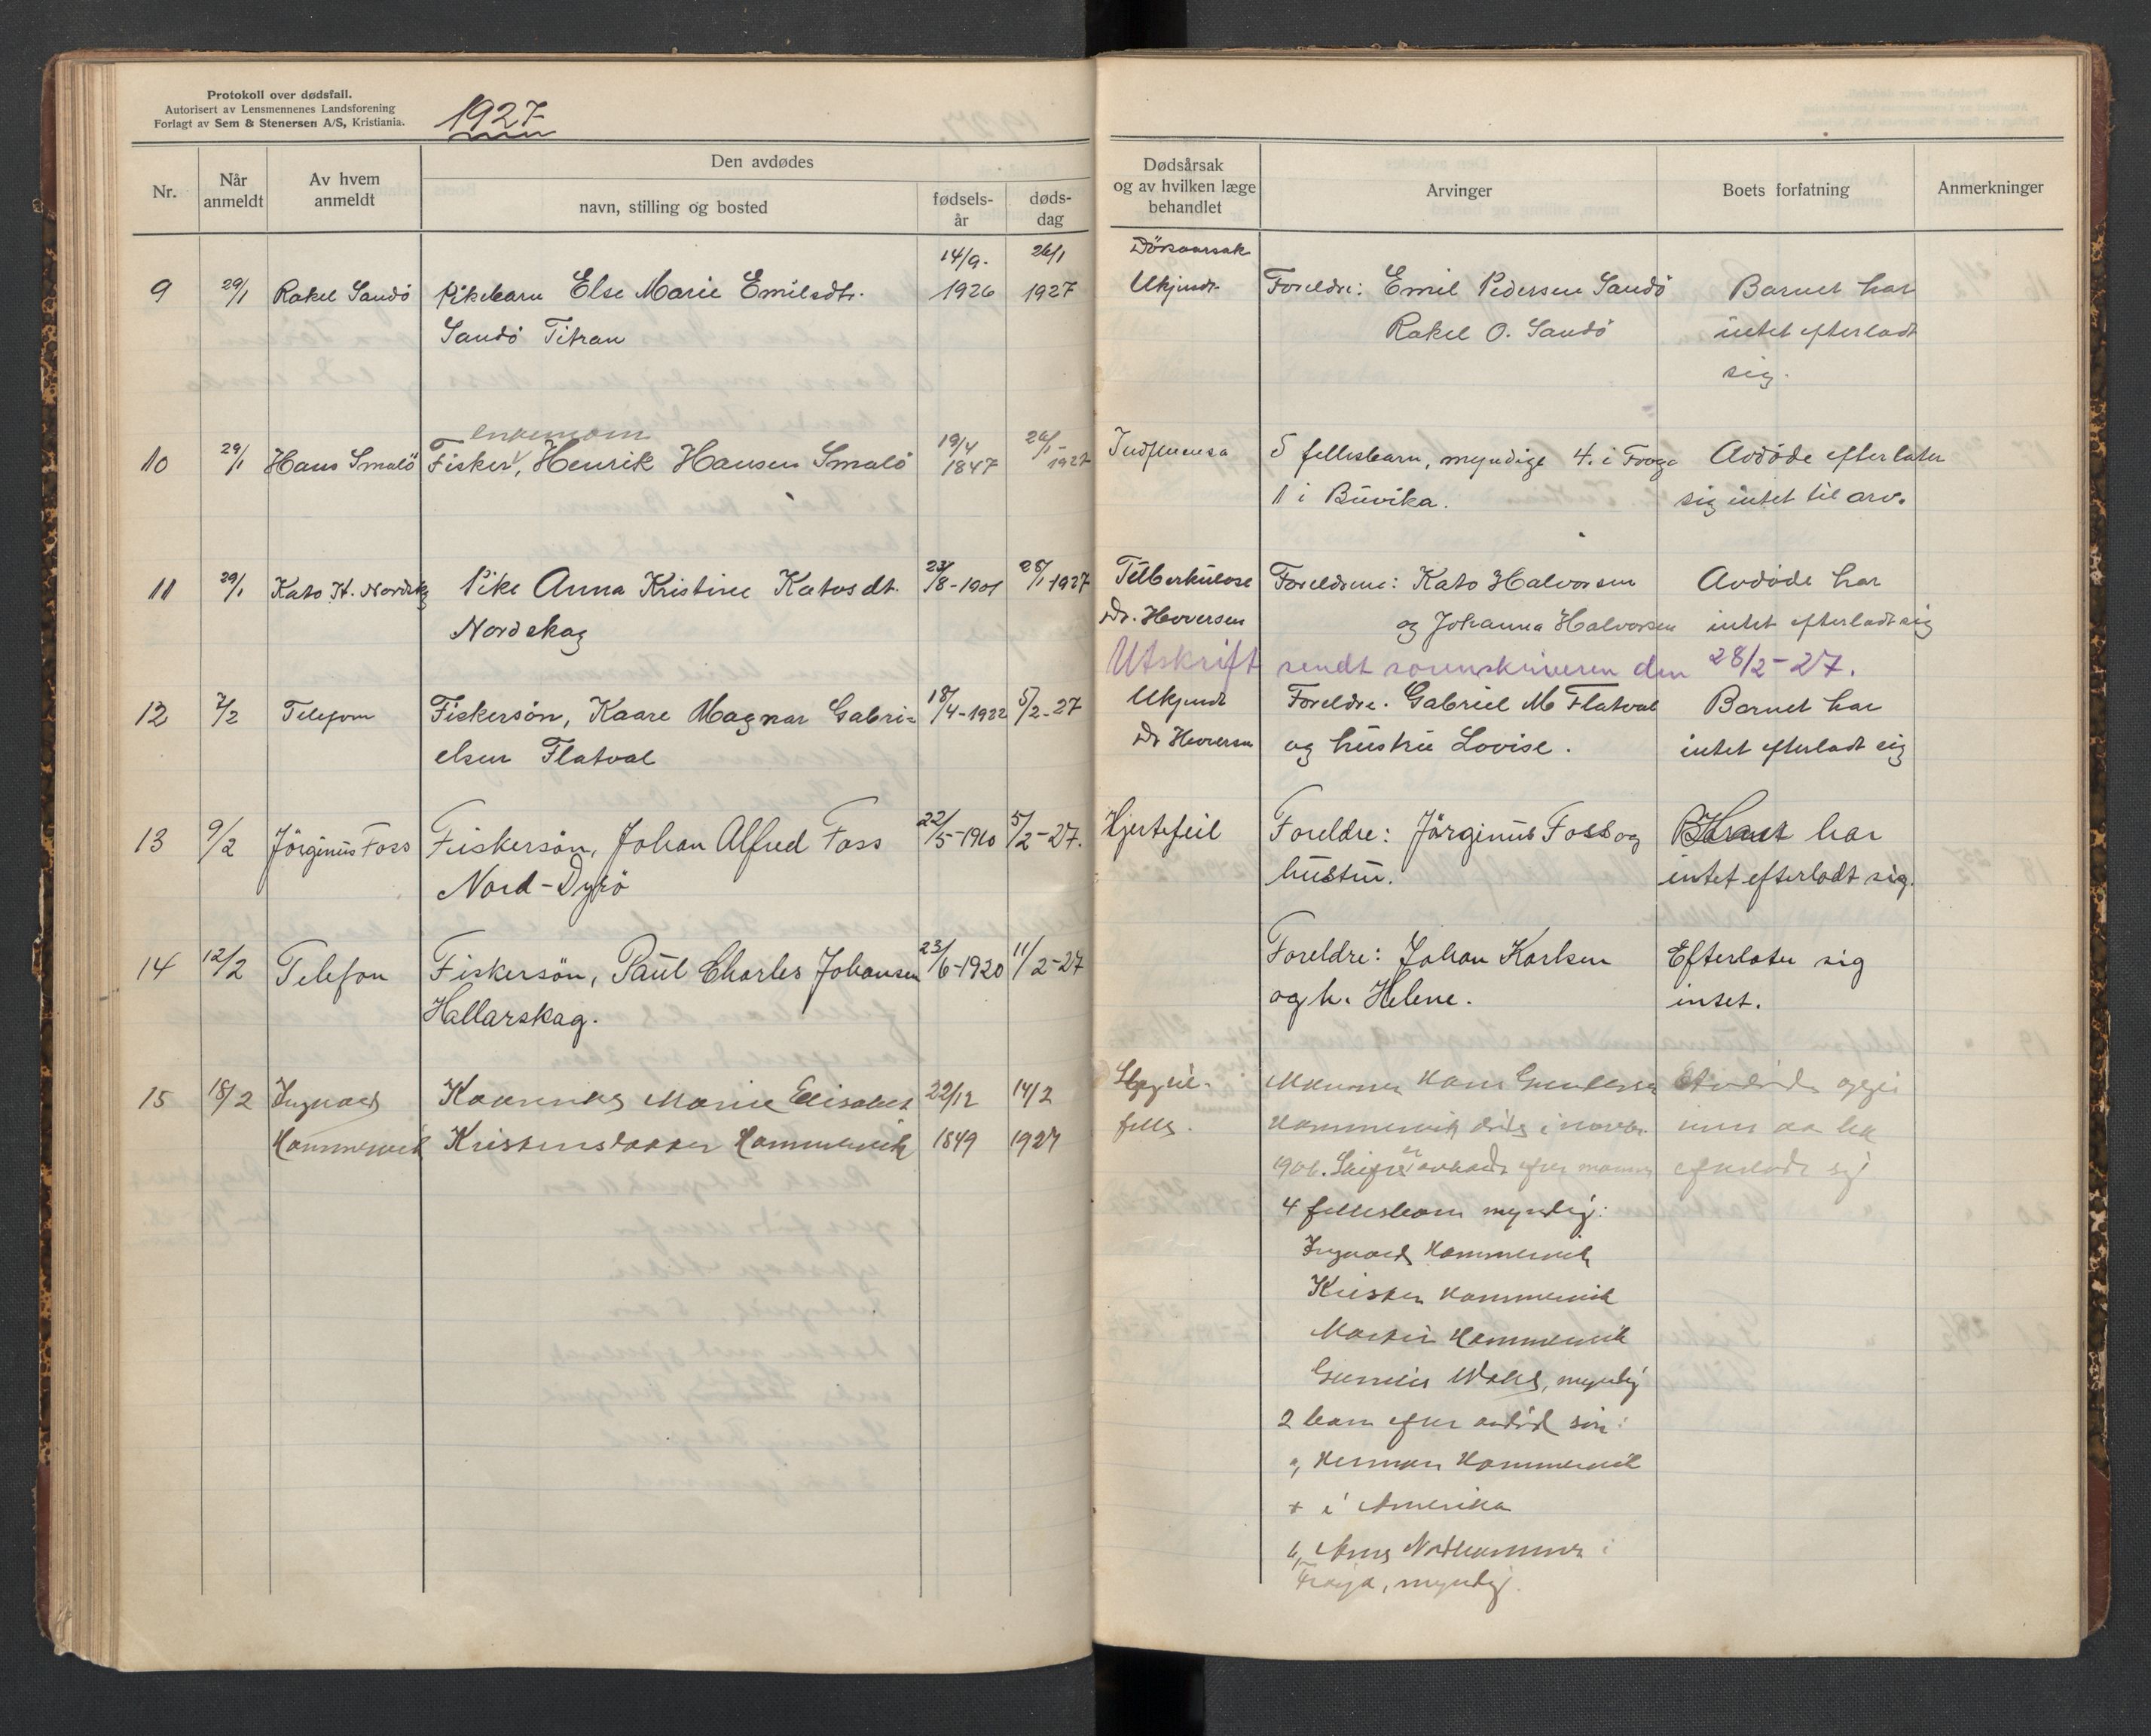 Protokoll over dødsfall.
Autorisert av Lensmennenes Landsforening
Forlagt av Sem & Stenersen A/S, Kristiania.
1927
Nr.
Når anmeldt
Av hvem anmeldt
Den avdødes
navn, stilling og bosted
fødselsår
dødsdag
Dødsårsak
og av hvilken læge
behandlet
Arvinger
Boets forfatning
Anmerkninger
9 29/1 Rakel Sandö Pikebarn Else Marie Emilsdtr. 14/9. 1926 26/1 1927
Sandö Titran
Dösaarsak
Ukjendt Foreldre: Emil Pedersen Sandö Barnet har
Rakel O. Sandö intet efterladt
sig.
enkemann
10 29/1 Hans Smalö Fisker, Henrik Hansen Smalö 19/4 1847 26/1- 1927
Indfluensa 5 fellesbarn, myndige 4. i Frøya Avdöde efterlater
1 i Buvika. sig intet til arv.
11 29/1 Kato H. Nordskag Pike Anna Kristine Katosdt. 23/8-1901 28/1 1927
Nordskag
Tüberkülose Foreldrene: Kato Halvorsen Avdöde har
Dr. Heversen og Johanna Halvorsen intet efterladt sig
Utskrift sendt sorenskriveren den 28/2-27.
12 7/2 Telefon Fiskersön, Kaare Magnar Gabri=
elsen Flatval 18/4-1922 5/2-27
Ukjendt Foreldre. Gabriel M Flatval Barnet har
Dr Heversen og hustru Lovise. intet efterladt sig
13 9/2 Jörginus Foss Fiskersön, Johan Alfred Foss 22/5-1910 5/2-27.
Nord-Dyrö
Hjertefeil Foreldre: Jörginus Foss og har
hustru. intet efterladt sig.
14 12/2 Telefon Fiskersön, Paul Charles Johansen 23/6-1920 11/2-27
Hallarskag.
Foreldre: Johan Karlsen Efterlater sig
og h. Helene. intet.
15 18/2 Ingvald Marie Elisabet 22/12 14/2
Hammervik Kristensdatter Hammervik 1849 1927
Mannen Hans
Hammervik döde i
1906.
4 fellesbarn myndig:
Ingvald Hammervik
Kristen Hammervik
Martin Hammervik
myndig
2 barn efter avdöd sön:
a, Herman Hammervik
+ i Amerika
b, i
Frøya, myndig.